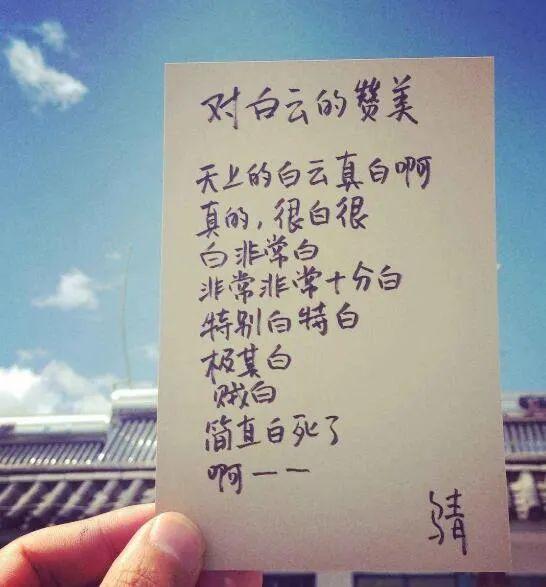 对白云的赞美
天上的白云真白啊
真的，很白很
白非常白
非常非常十分白
特别白特白
极其白
贼白
简直白死了
啊——